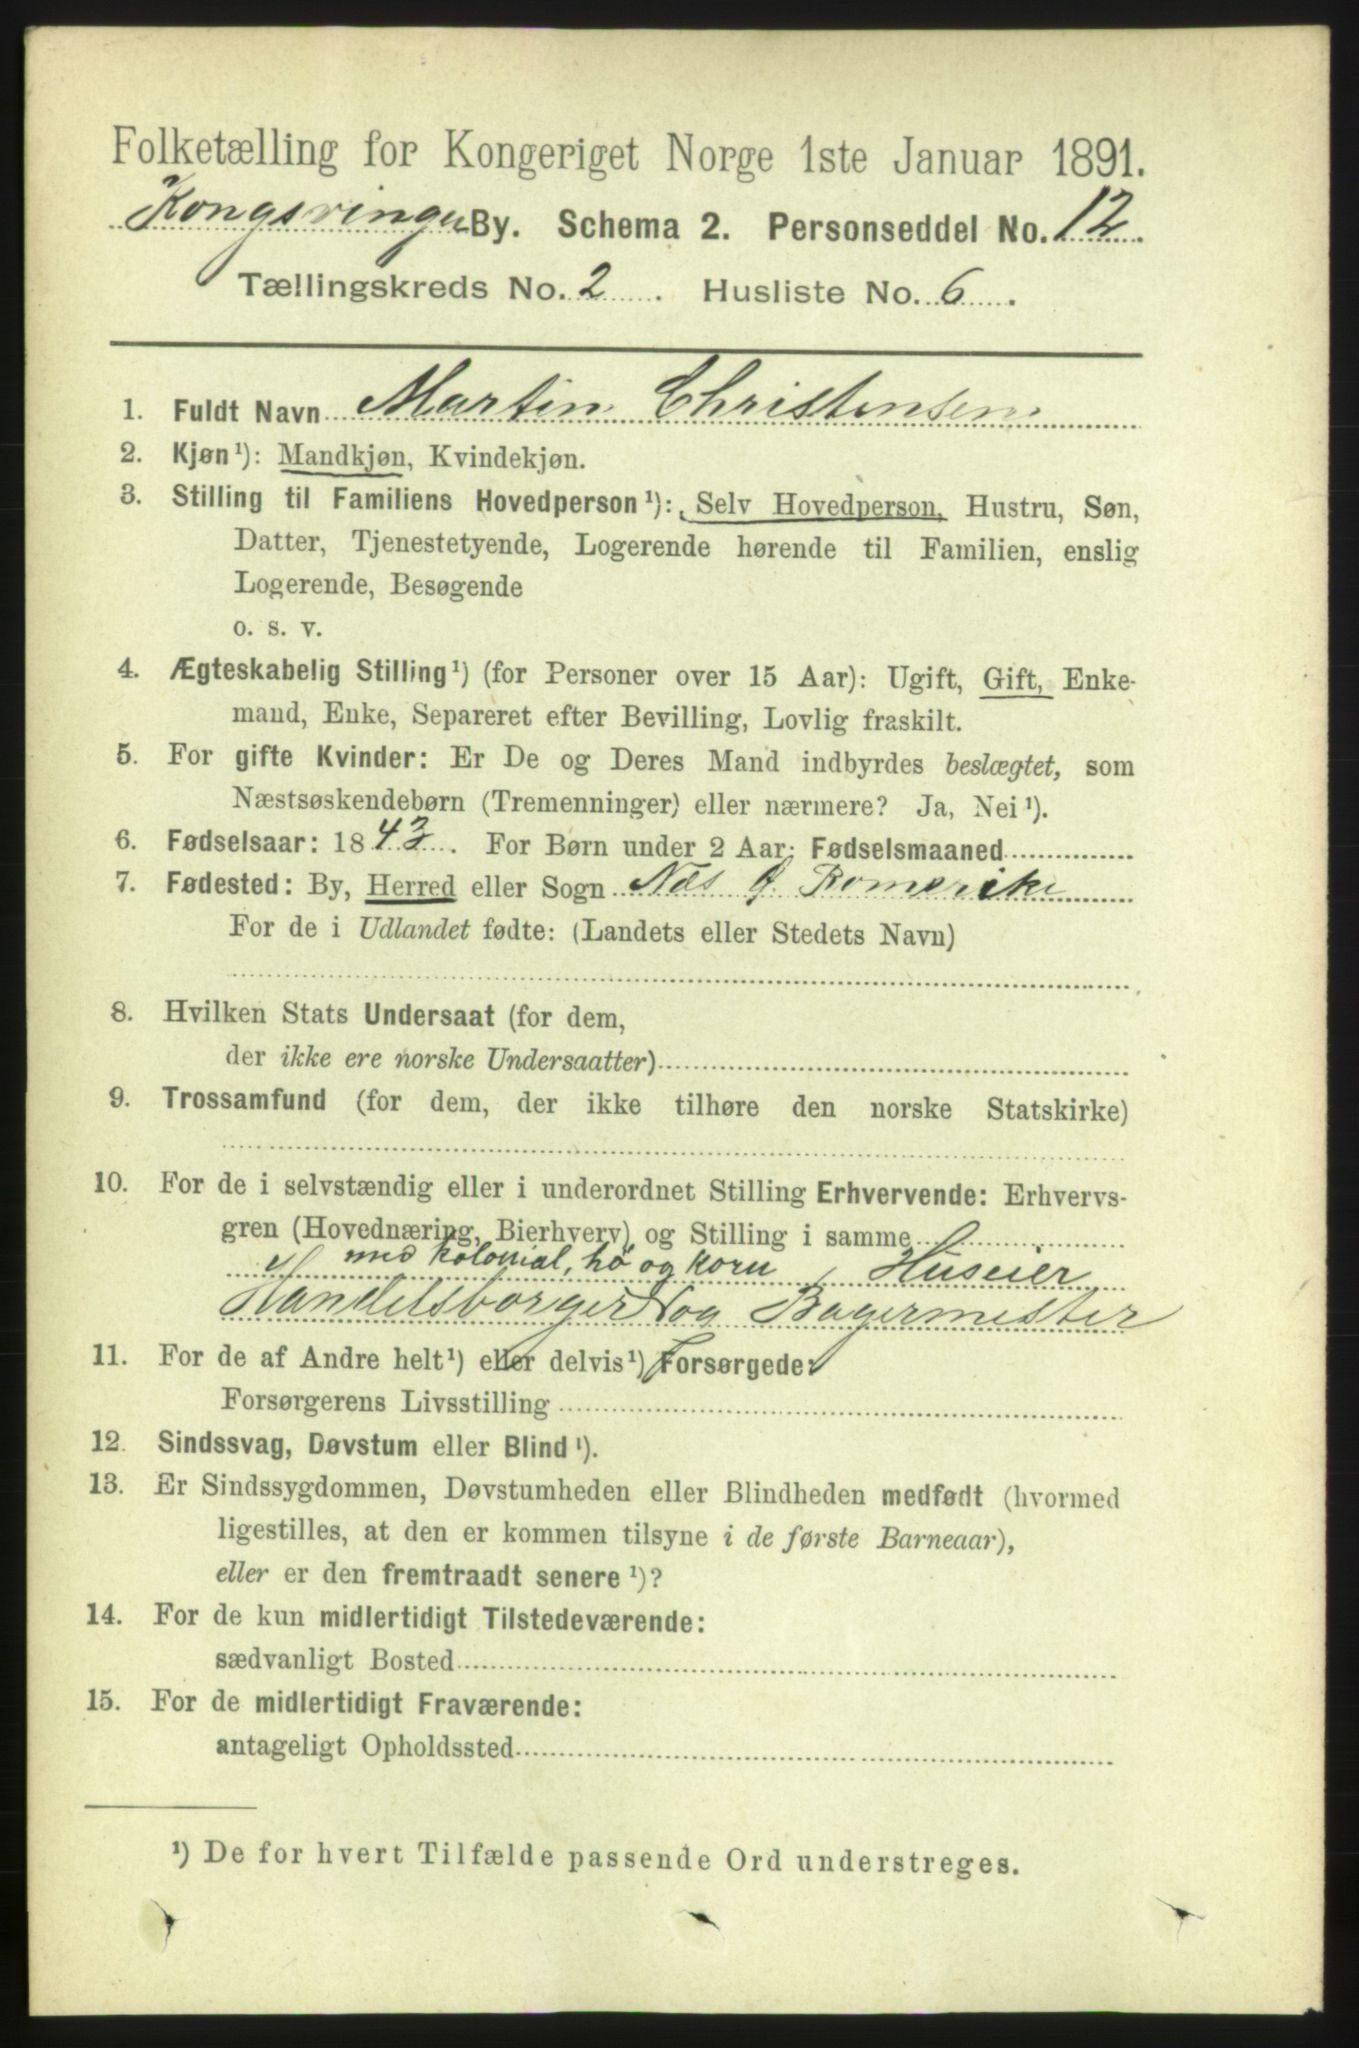 Folketælling for Kongeriget Norge 1ste Januar 1891.
Kongsvinger By. Schema 2. Personseddel No. 12.
Tællingskreds No. 2. Husliste No. 6.
1. Fuldt Navn Martin Christensen
2. Kjøn¹): Mandkjøn, Kvindekjøn.
3. Stilling til Familiens Hovedperson¹): Selv Hovedperson, Hustru, Søn,
Datter, Tjenestetyende, Logerende hørende til Familien, enslig
Logerende, Besøgende
o. s. v.
4. Ægteskabelig Stilling¹) (for Personer over 15 Aar): Ugift, Gift, Enke-
mand, Enke, Separeret efter Bevilling, Lovlig fraskilt.
5. For gifte Kvinder: Er De og Deres Mand indbyrdes beslægtet, som
Næstsøskendebørn (Tremenninger) eller nærmere? Ja, Nei¹).
6. Fødselsaar: 1843. For Børn under 2 Aar: Fødselsmaaned
7. Fødested: By, Herred eller Sogn Næs Ø. Romerike
For de i Udlandet fødte: (Landets eller Stedets Navn)
8. Hvilken Stats Undersaat (for dem,
der ikke ere norske Undersaatter)
9. Trossamfund (for dem, der ikke tilhøre den norske Statskirke)
10. For de i selvstændig eller i underordnet Stilling Erhvervende: Erhvervs-
gren (Hovednæring, Bierhverv) og Stilling i samme
med kolonial, hø og korn, Huseier
Handelsborger og Bagermester
11. For de af Andre helt¹) eller delvis¹) Forsørgede:
Forsørgerens Livsstilling
12. Sindssvag, Døvstum eller Blind¹).
13. Er Sindssygdommen, Døvstumheden eller Blindheden medfødt (hvormed
ligestilles, at den er kommen tilsyne i de første Barneaar),
eller er den fremtraadt senere¹)?
14. For de kun midlertidigt Tilstedeværende:
sædvanligt Bosted
15. For de midlertidigt Fraværende:
antageligt Opholdssted
¹) De for hvert Tilfælde passende Ord understreges.